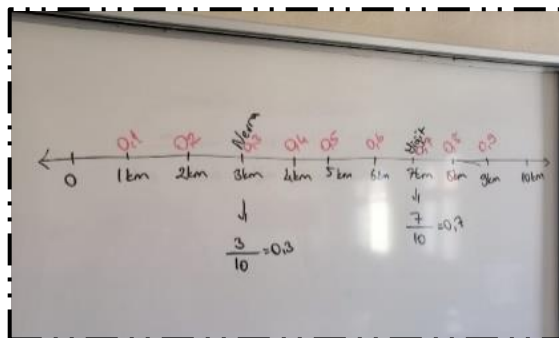 Nema
0,1 0,2 0,3 0,4 0,5 0,6 0,7 0,8 0,9
0 1km 2km 3km 4km 5km 6km 7km 8km 9km 10km
3/10 = 0,3
7/10 = 0,7